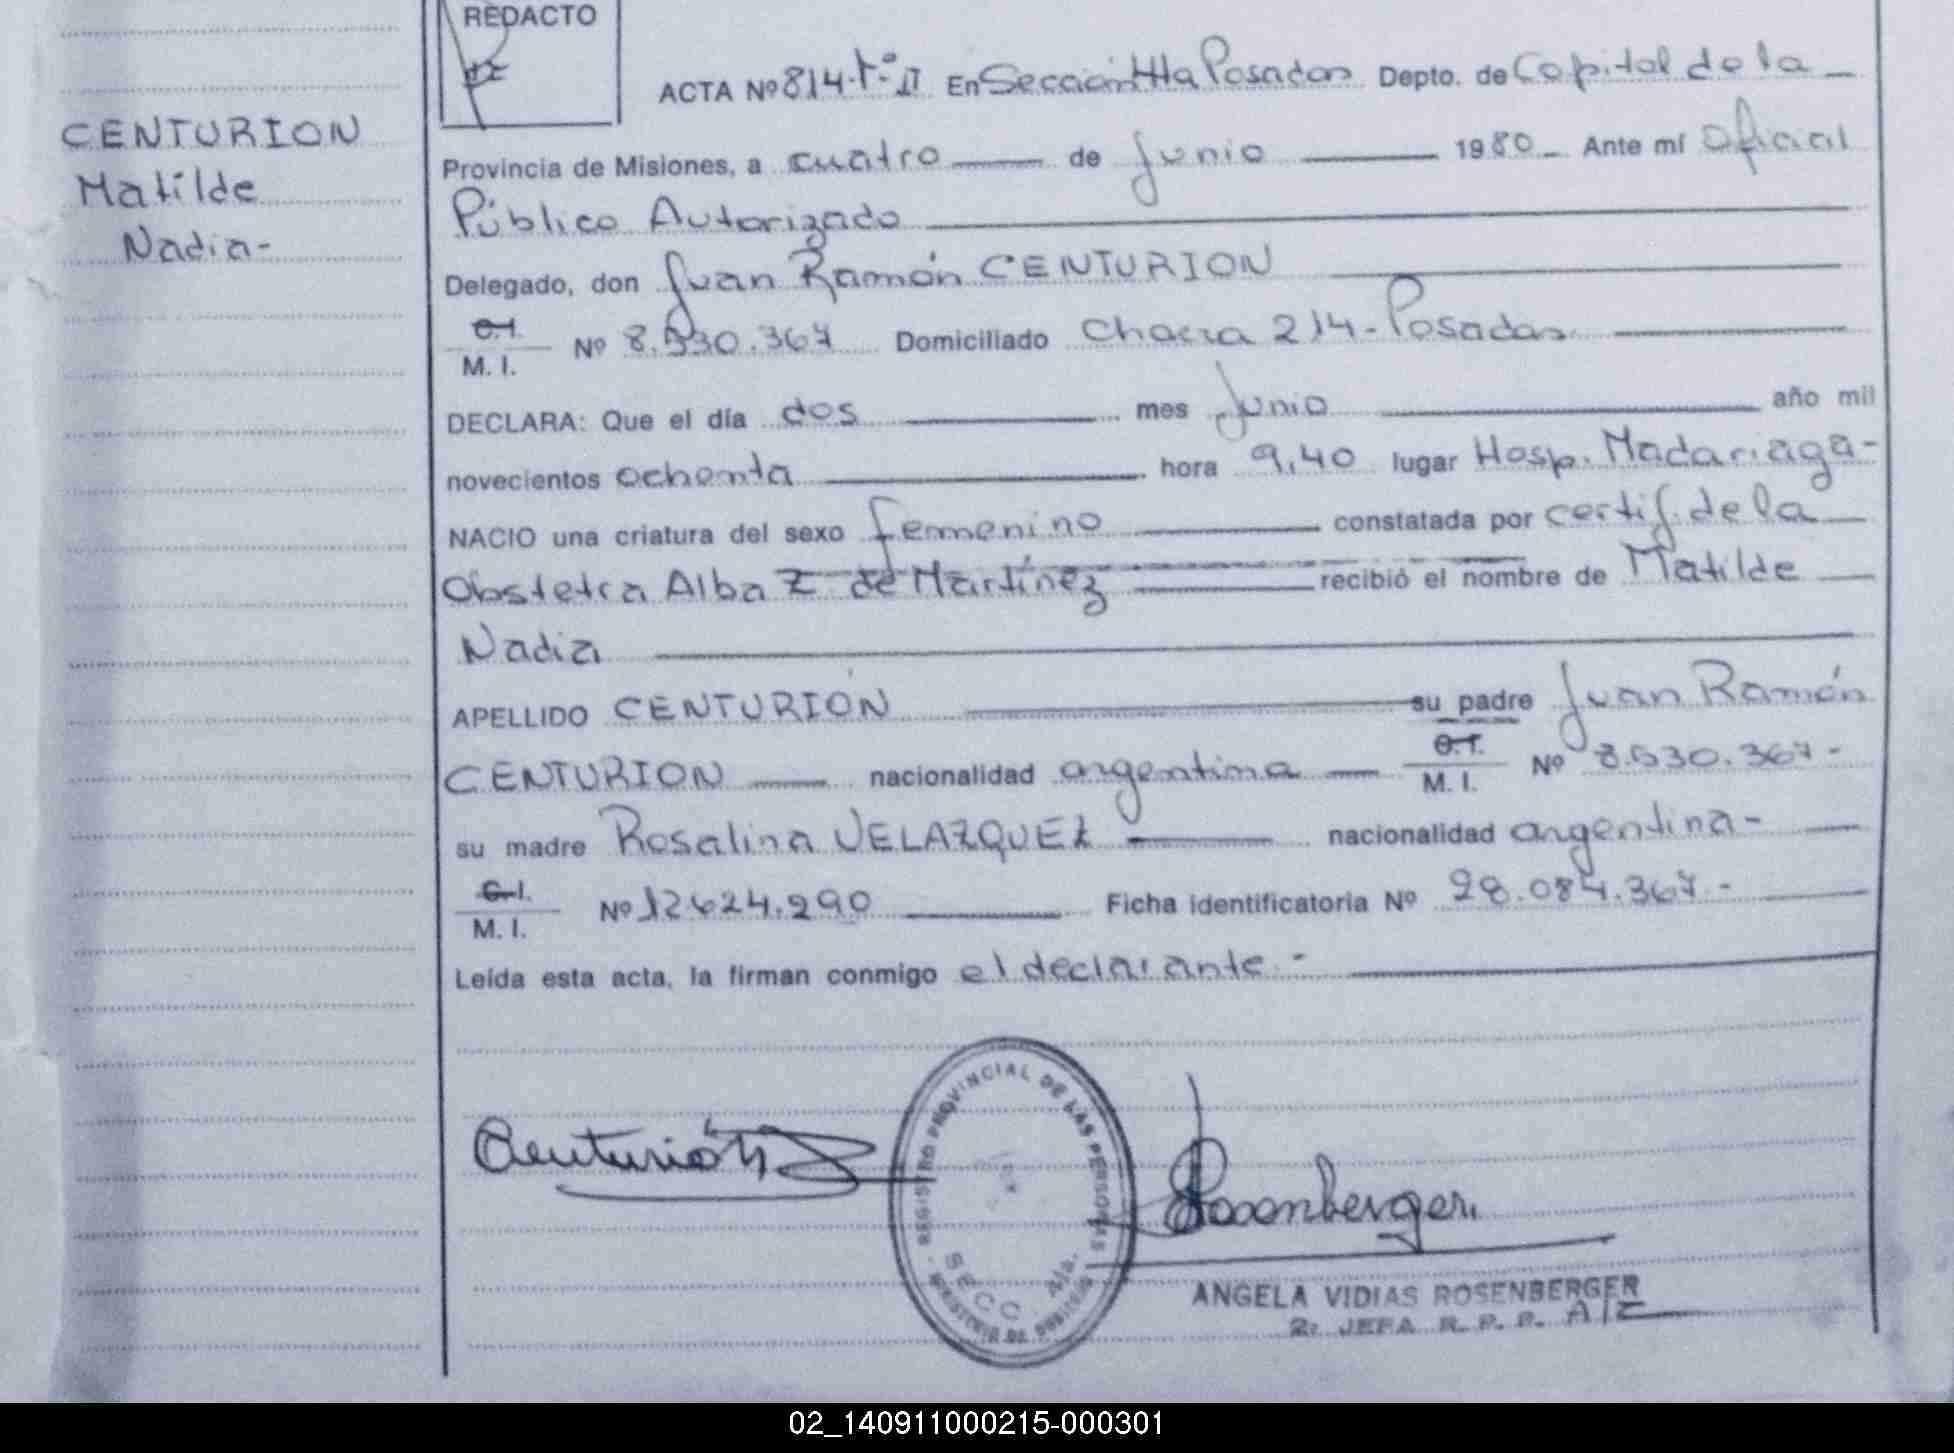 REDACTO
ACTA Nº 814. Tº II En Sección 4ta Posadas Depto. de Capital de la
CENTURION
Matilde
Nadia-
Provincia de Misiones, a cuatro de Junio 1980 Ante mí Oficial
Público Autorizado
Delegado, don Juan Ramón CENTURION
C.I.
M. I. Nº 8.530.367 Domiciliado Chacra 214-Posadas
DECLARA: Que el día dos mes Junio año mil
novecientos ochenta hora 9,40 lugar Hosp. Madariaga-
NACIO una criatura del sexo femenino constatada por certif. de la
Obstetra Alba Z. de Martínez recibió el nombre de Matilde
Nadia
APELLIDO CENTURION su padre Juan Ramón
CENTURION nacionalidad argentina C.I.
M. I. Nº 8.530.367-
su madre Rosalina VELAZQUEZ nacionalidad argentina-
C.I.
M. I. Nº 12624.290 Ficha identificatoria Nº 28.084.367-
Leída esta acta, la firman conmigo el declarante.-
Centurión
REGISTRO PROVINCIAL DE LAS PERSONAS
SECC. 4ta.
MINISTERIO DE GOBIERNO
Rosenberger
ANGELA VIDIAS ROSENBERGER
2: JEFA R. P. P. A/C
02_140911000215-000301